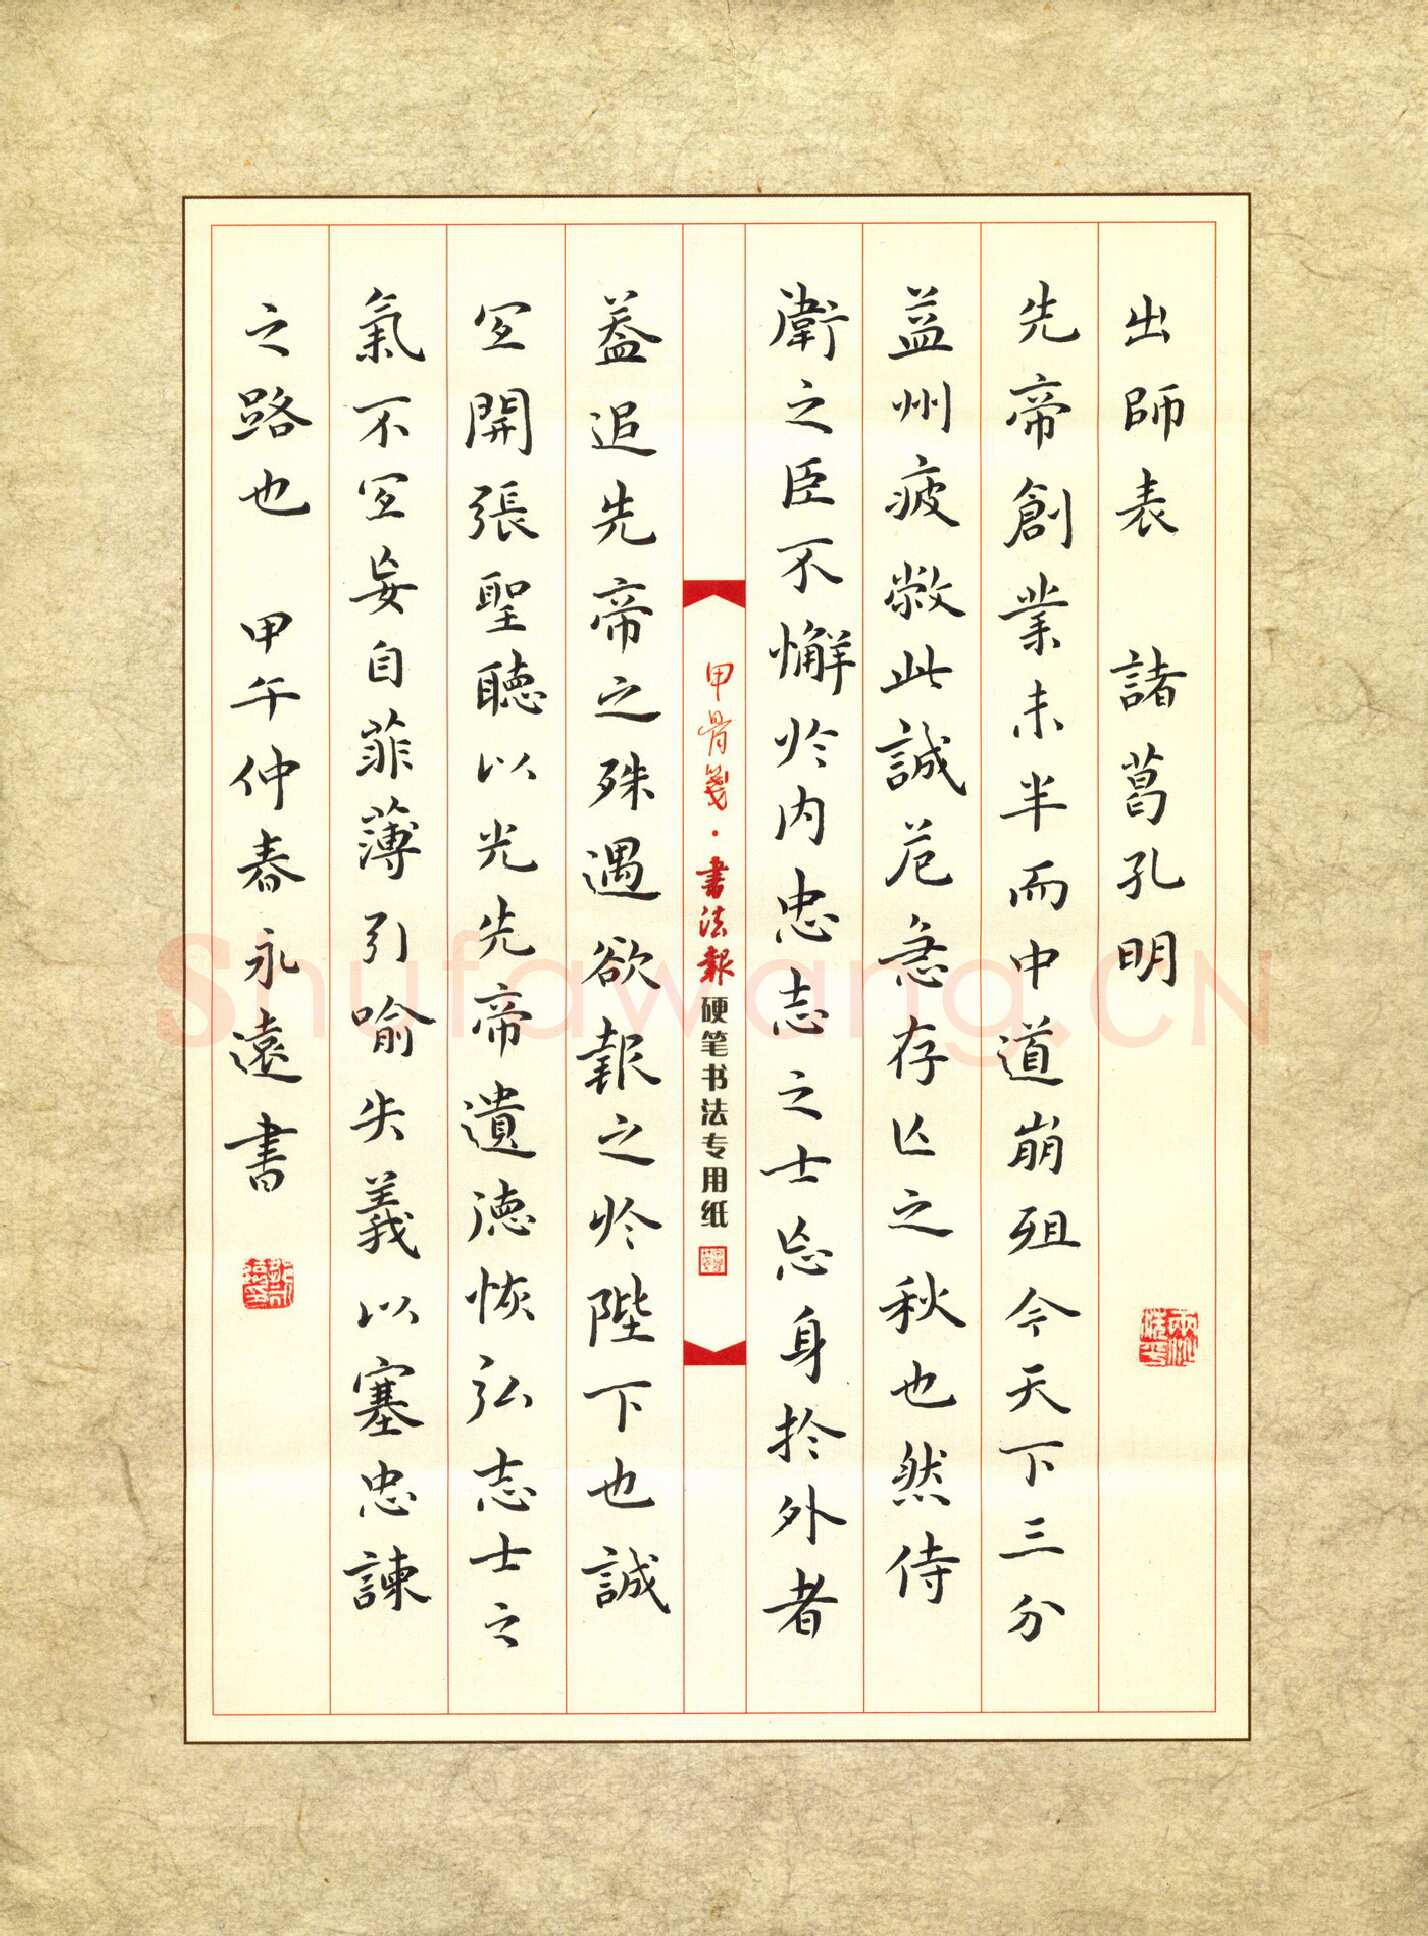 出師表 諸葛孔明
先帝創業未半而中道崩殂今天下三分
益州疲敝此誠危急存亡之秋也然侍
衛之臣不懈於内忠志之士忘身於外者
蓋追先帝之殊遇欲報之於陛下也誠
宜開張聖聽以光先帝遺德恢弘志士之
氣不宜妄自菲薄引喻失義以塞忠諫
之路也 甲午仲春永遠書
甲骨箋·書法報硬笔书法专用纸
Shufawang.CN